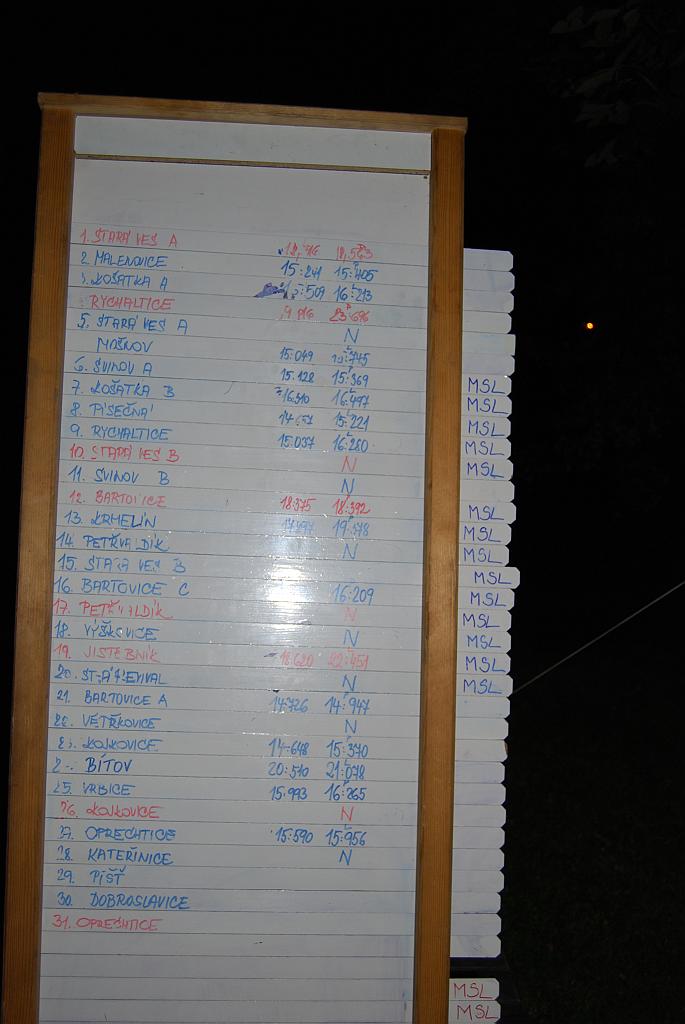 1. STARÁ VES A
2. MALENOVICE 15:241 15:405
3. KOŠATKA A :509 16:213
RYCHALTICE 23:696
5. STARÁ VES A N
MOŠNOV 15:049 :745
6. SVINOV A 15:128 15:369
7. KOŠATKA B 16:310 16:497 MSL
8. PÍSEČNÁ 15:221 MSL
9. RYCHALTICE 15:037 16:280 MSL
10. STARÁ VES B N MSL
11. SVINOV B N MSL
12. BARTOVICE 18:375 18:392
13. KRMELÍN 19:578 MSL
14. PETŘVALDÍK N MSL
15. STARÁ VES B MSL
16. BARTOVICE C 16:209 MSL
17. PETŘVALDÍK N MSL
18. VÝŠKOVICE N MSL
19. JISTEBNÍK 18:620 22:451 MSL
20. N MSL
21. BARTOVICE A 14:726 14:947 MSL
22. VĚTŘKOVICE N
23. KOJKOVICE 14:648 15:370
BÍTOV 20:510 21:078
25. VRBICE 15:993 16:265
26. KOJKOVICE N
27. OPRECHTICE 15:590 15:956
28. KATEŘINICE N
29. PÍŠŤ
30. DOBROSLAVICE
31. OPRECHTICE
MSL
MSL